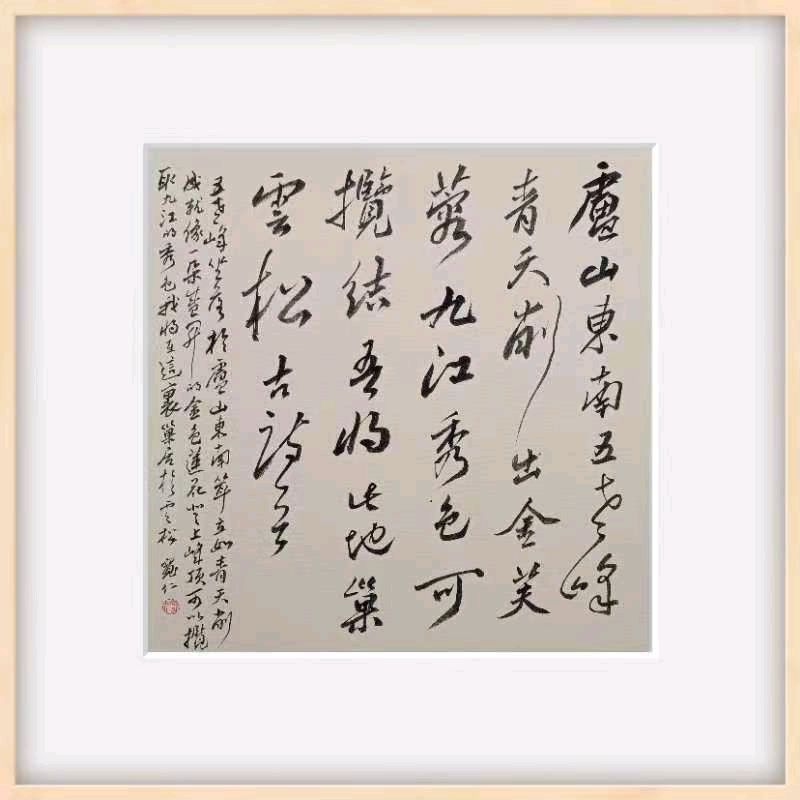 盧山東南五老峰
青天削出金芙
蓉九江秀色可
攬結吾將此地巢
雲松古詩云
五老峰坐落於盧山東南立如青天削
成就像一朵盛開的金色蓮花登上峰頂可以攬
取九江的秀色我將在這裏巢居於雲松 仁